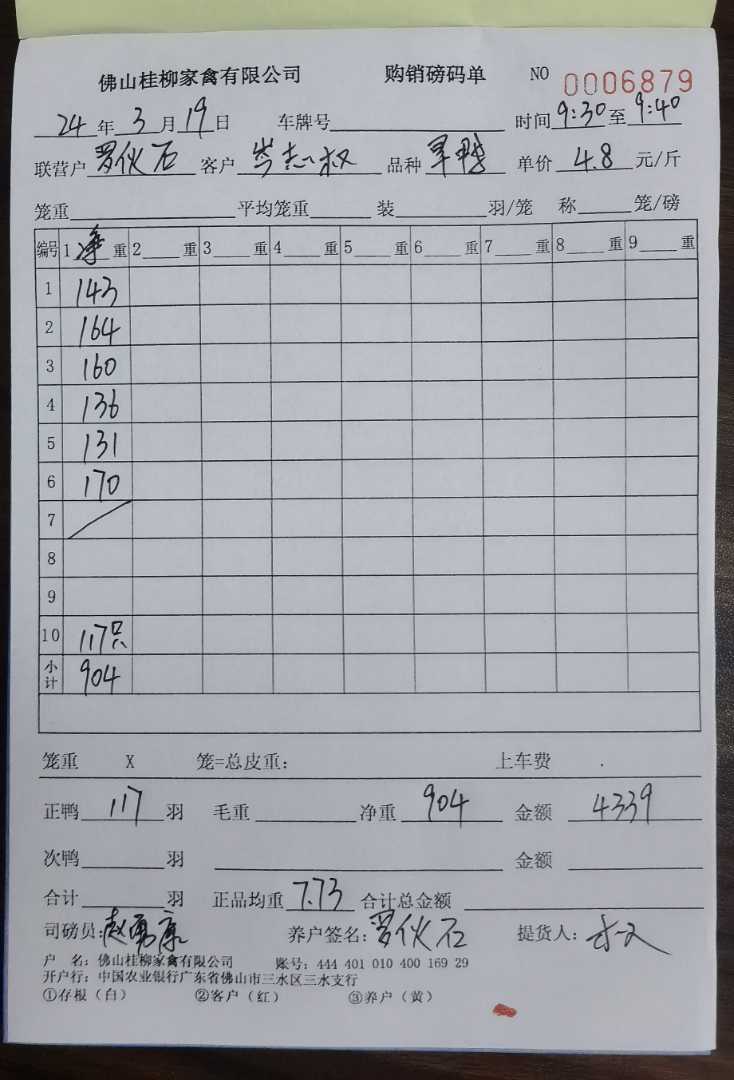 佛山桂柳家禽有限公司 购销磅码单 NO 0006879
24年3月19日 车牌号 时间9:30至9:40
联营户罗伙石 客户岑志权 品种旱鸭 单价4.8元/斤
笼重 平均笼重 装 羽/笼 称 笼/磅
编号 1净重 2重 3重 4重 5重 6重 7重 8重 9重
1 143
2 164
3 160
4 136
5 131
6 170
7
8
9
10 117只
小计 904
笼重 X 笼=总皮重: 上车费
正鸭117羽 毛重 净重904 金额4339
次鸭 羽 金额
合计 羽 正品均重7.73 合计总金额
司磅员:赵勇康 养户签名:罗伙石 提货人:
户 名: 佛山桂柳家禽有限公司 账号: 444 401 010 400 169 29
开户行: 中国农业银行广东省佛山市三水区三水支行
①存根(白) ②客户(红) ③养户(黄)